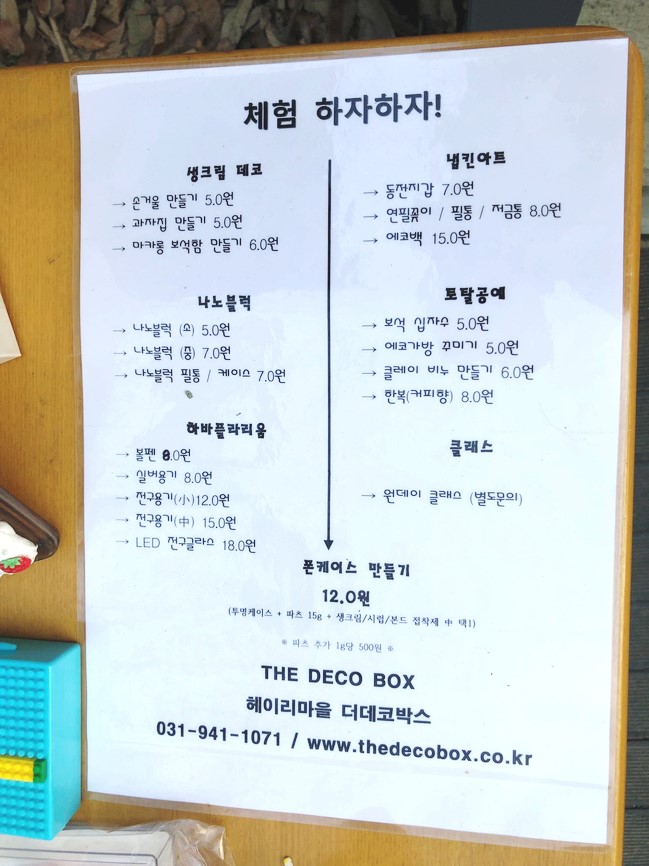 체험 하자하자!
생크림 데코
→ 손거울 만들기 5.0원
→ 과자집 만들기 5.0원
→ 마카롱 보석함 만들기 6.0원
나노블럭
→ 나노블럭 (소) 5.0원
→ 나노블럭 (중) 7.0원
→ 나노블럭 필통 / 케이스 7.0원
하바플라리움
→ 볼펜 8.0원
→ 실버용기 8.0원
→ 전구용기(小)12.0원
→ 전구용기(中) 15.0원
→ LED 전구글라스 18.0원
냅킨아트
→ 동전지갑 7.0원
→ 연필꽂이 / 필통 / 저금통 8.0원
→ 에코백 15.0원
토탈공예
→ 보석 십자수 5.0원
→ 에코가방 꾸미기 5.0원
→ 클레이 비누 만들기 6.0원
→ 한복(커피향) 8.0원
클래스
→ 원데이 클래스 (별도문의)
폰케이스 만들기
12.0원
(투명케이스 + 파츠 15g + 생크림/시럽/본드 접착제 中 택1)
※ 파츠 추가 1g당 500원 ※
THE DECO BOX
헤이리마을 더데코박스
031-941-1071 / www.thedecobox.co.kr